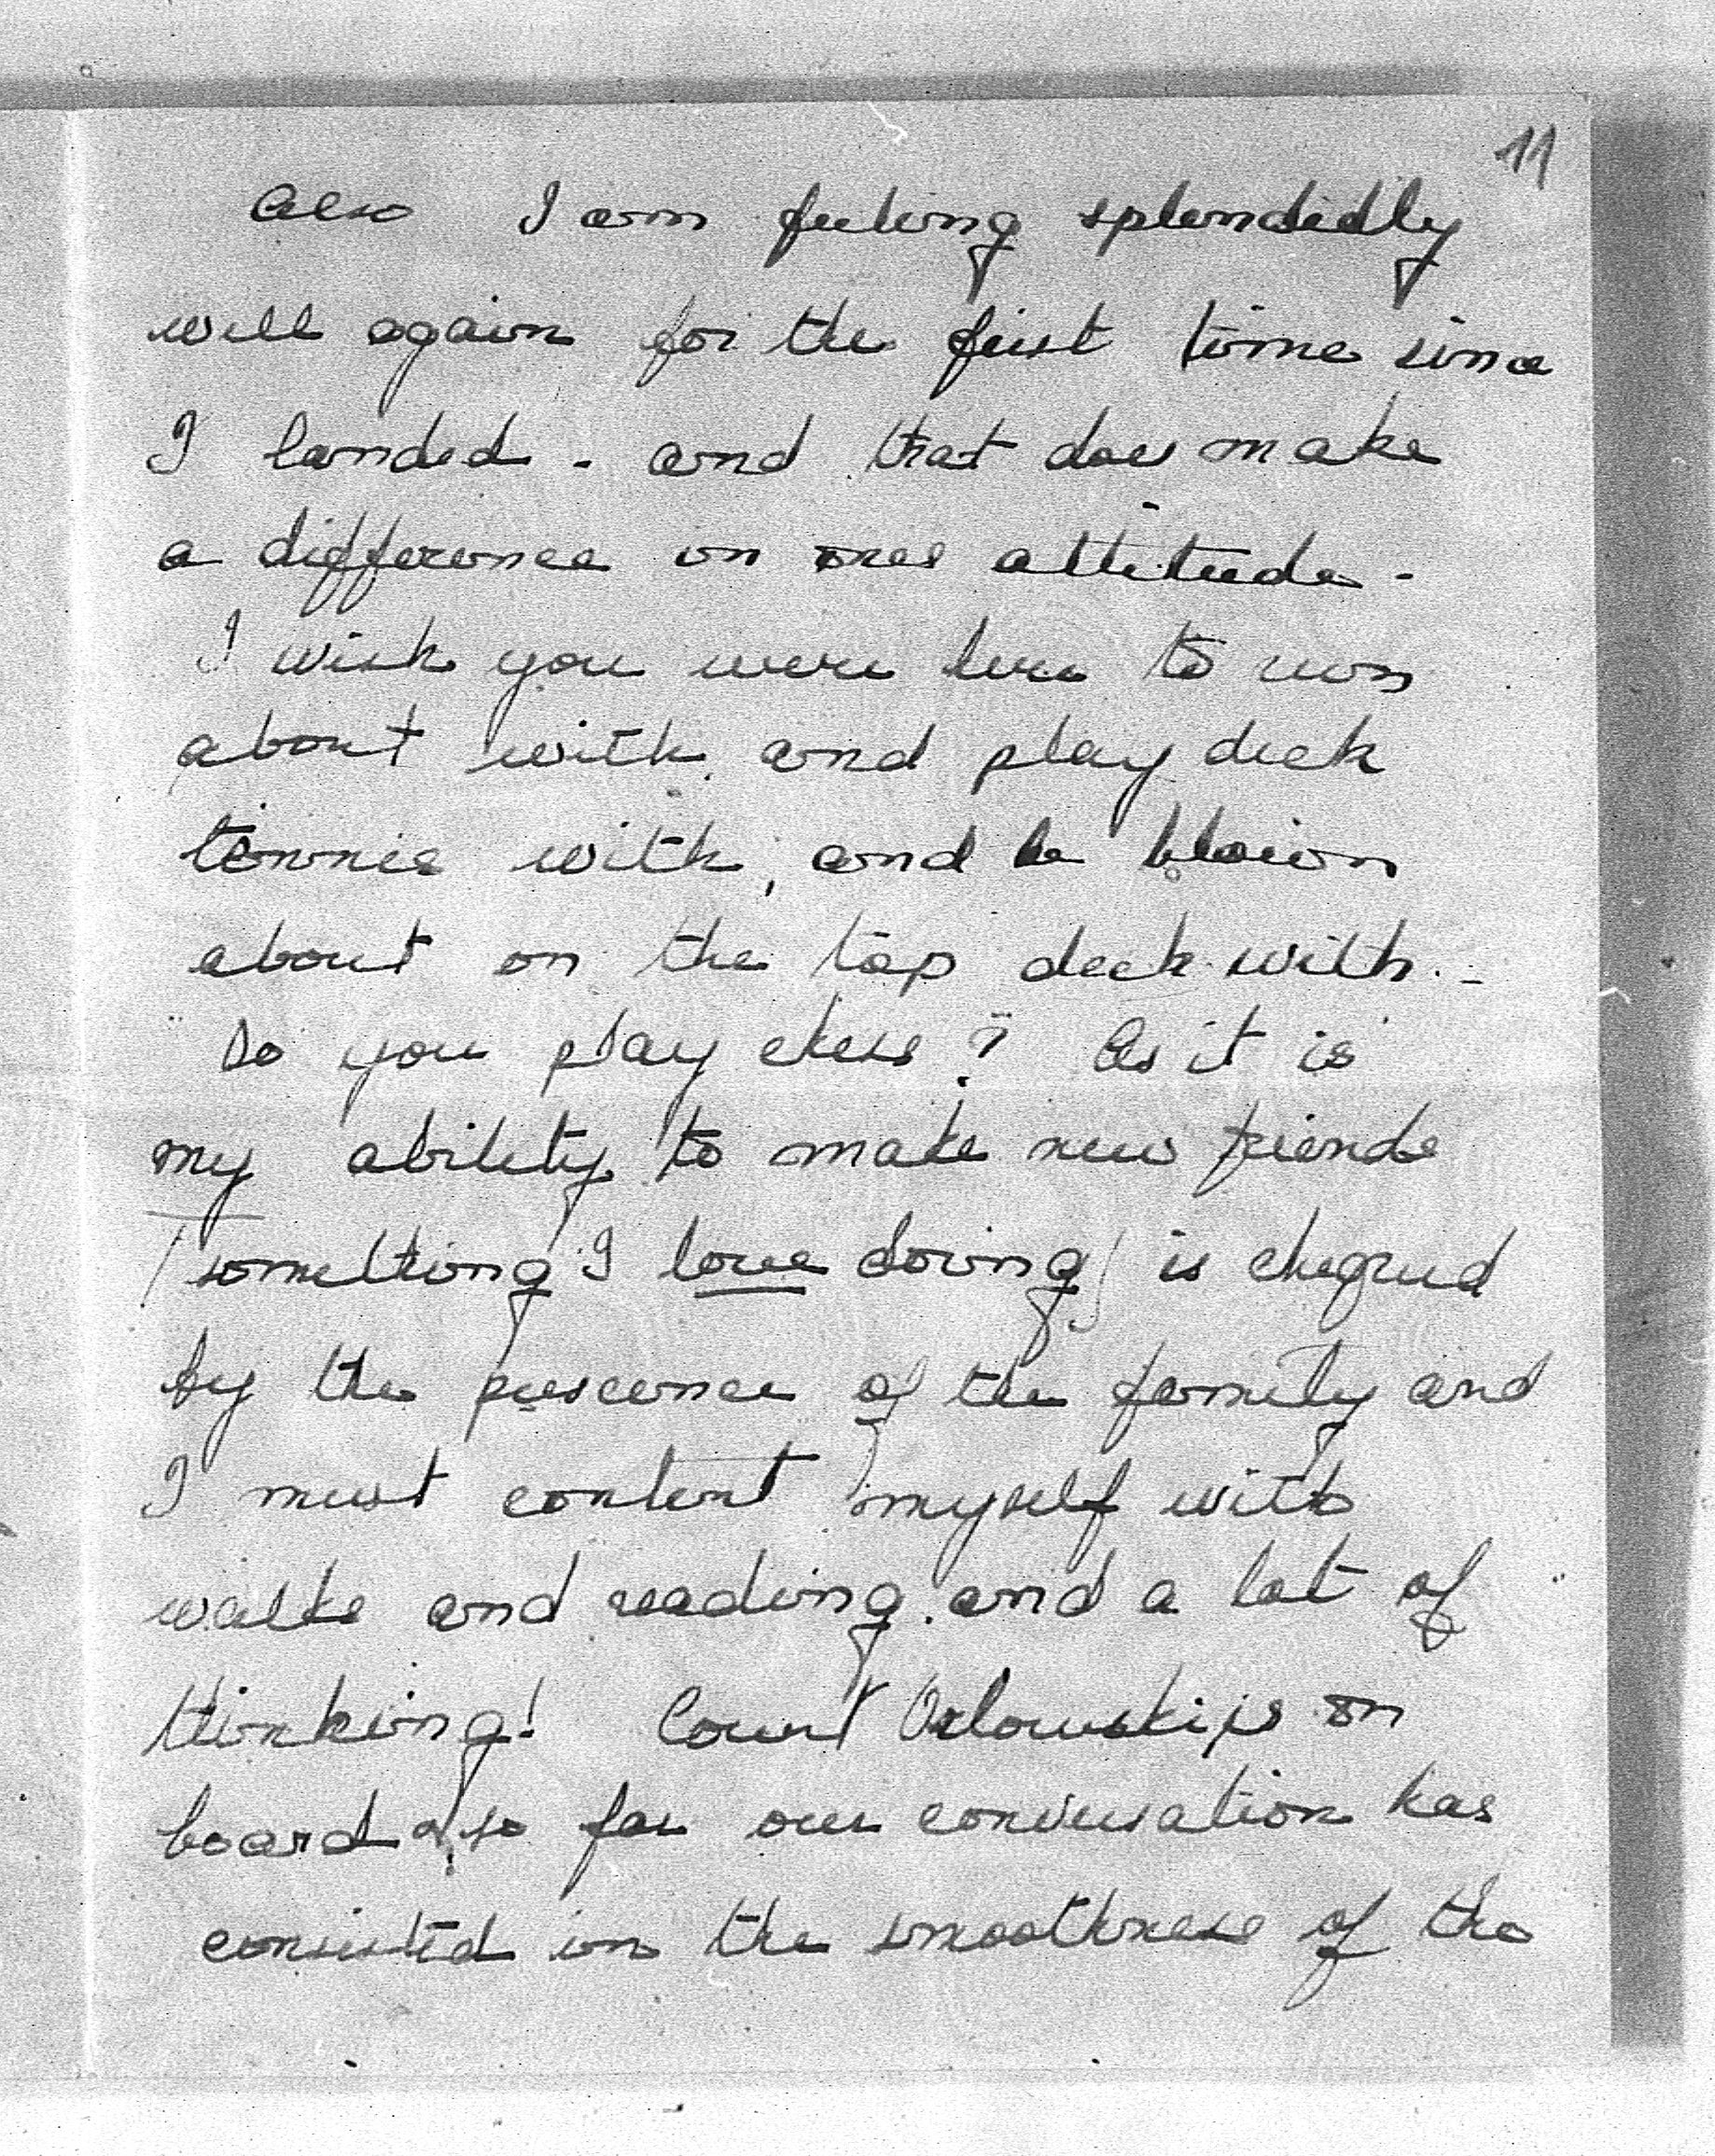 11
Also I am feeling splendidly
well again for the first time since
I landed - and that does make
a difference in ones attitude -
I wish you were here to run
about with, and play deck
tennis with, and be blown
about on the top deck with. -
Do you play chess? As it is
my ability to make new friends
(something I love doing) is
by the prescence of the family and
I must content myself with
walks and reading and a lot of
thinking! Count Orlowski is on
board so far our conversation has
consisted in the smoothness of the